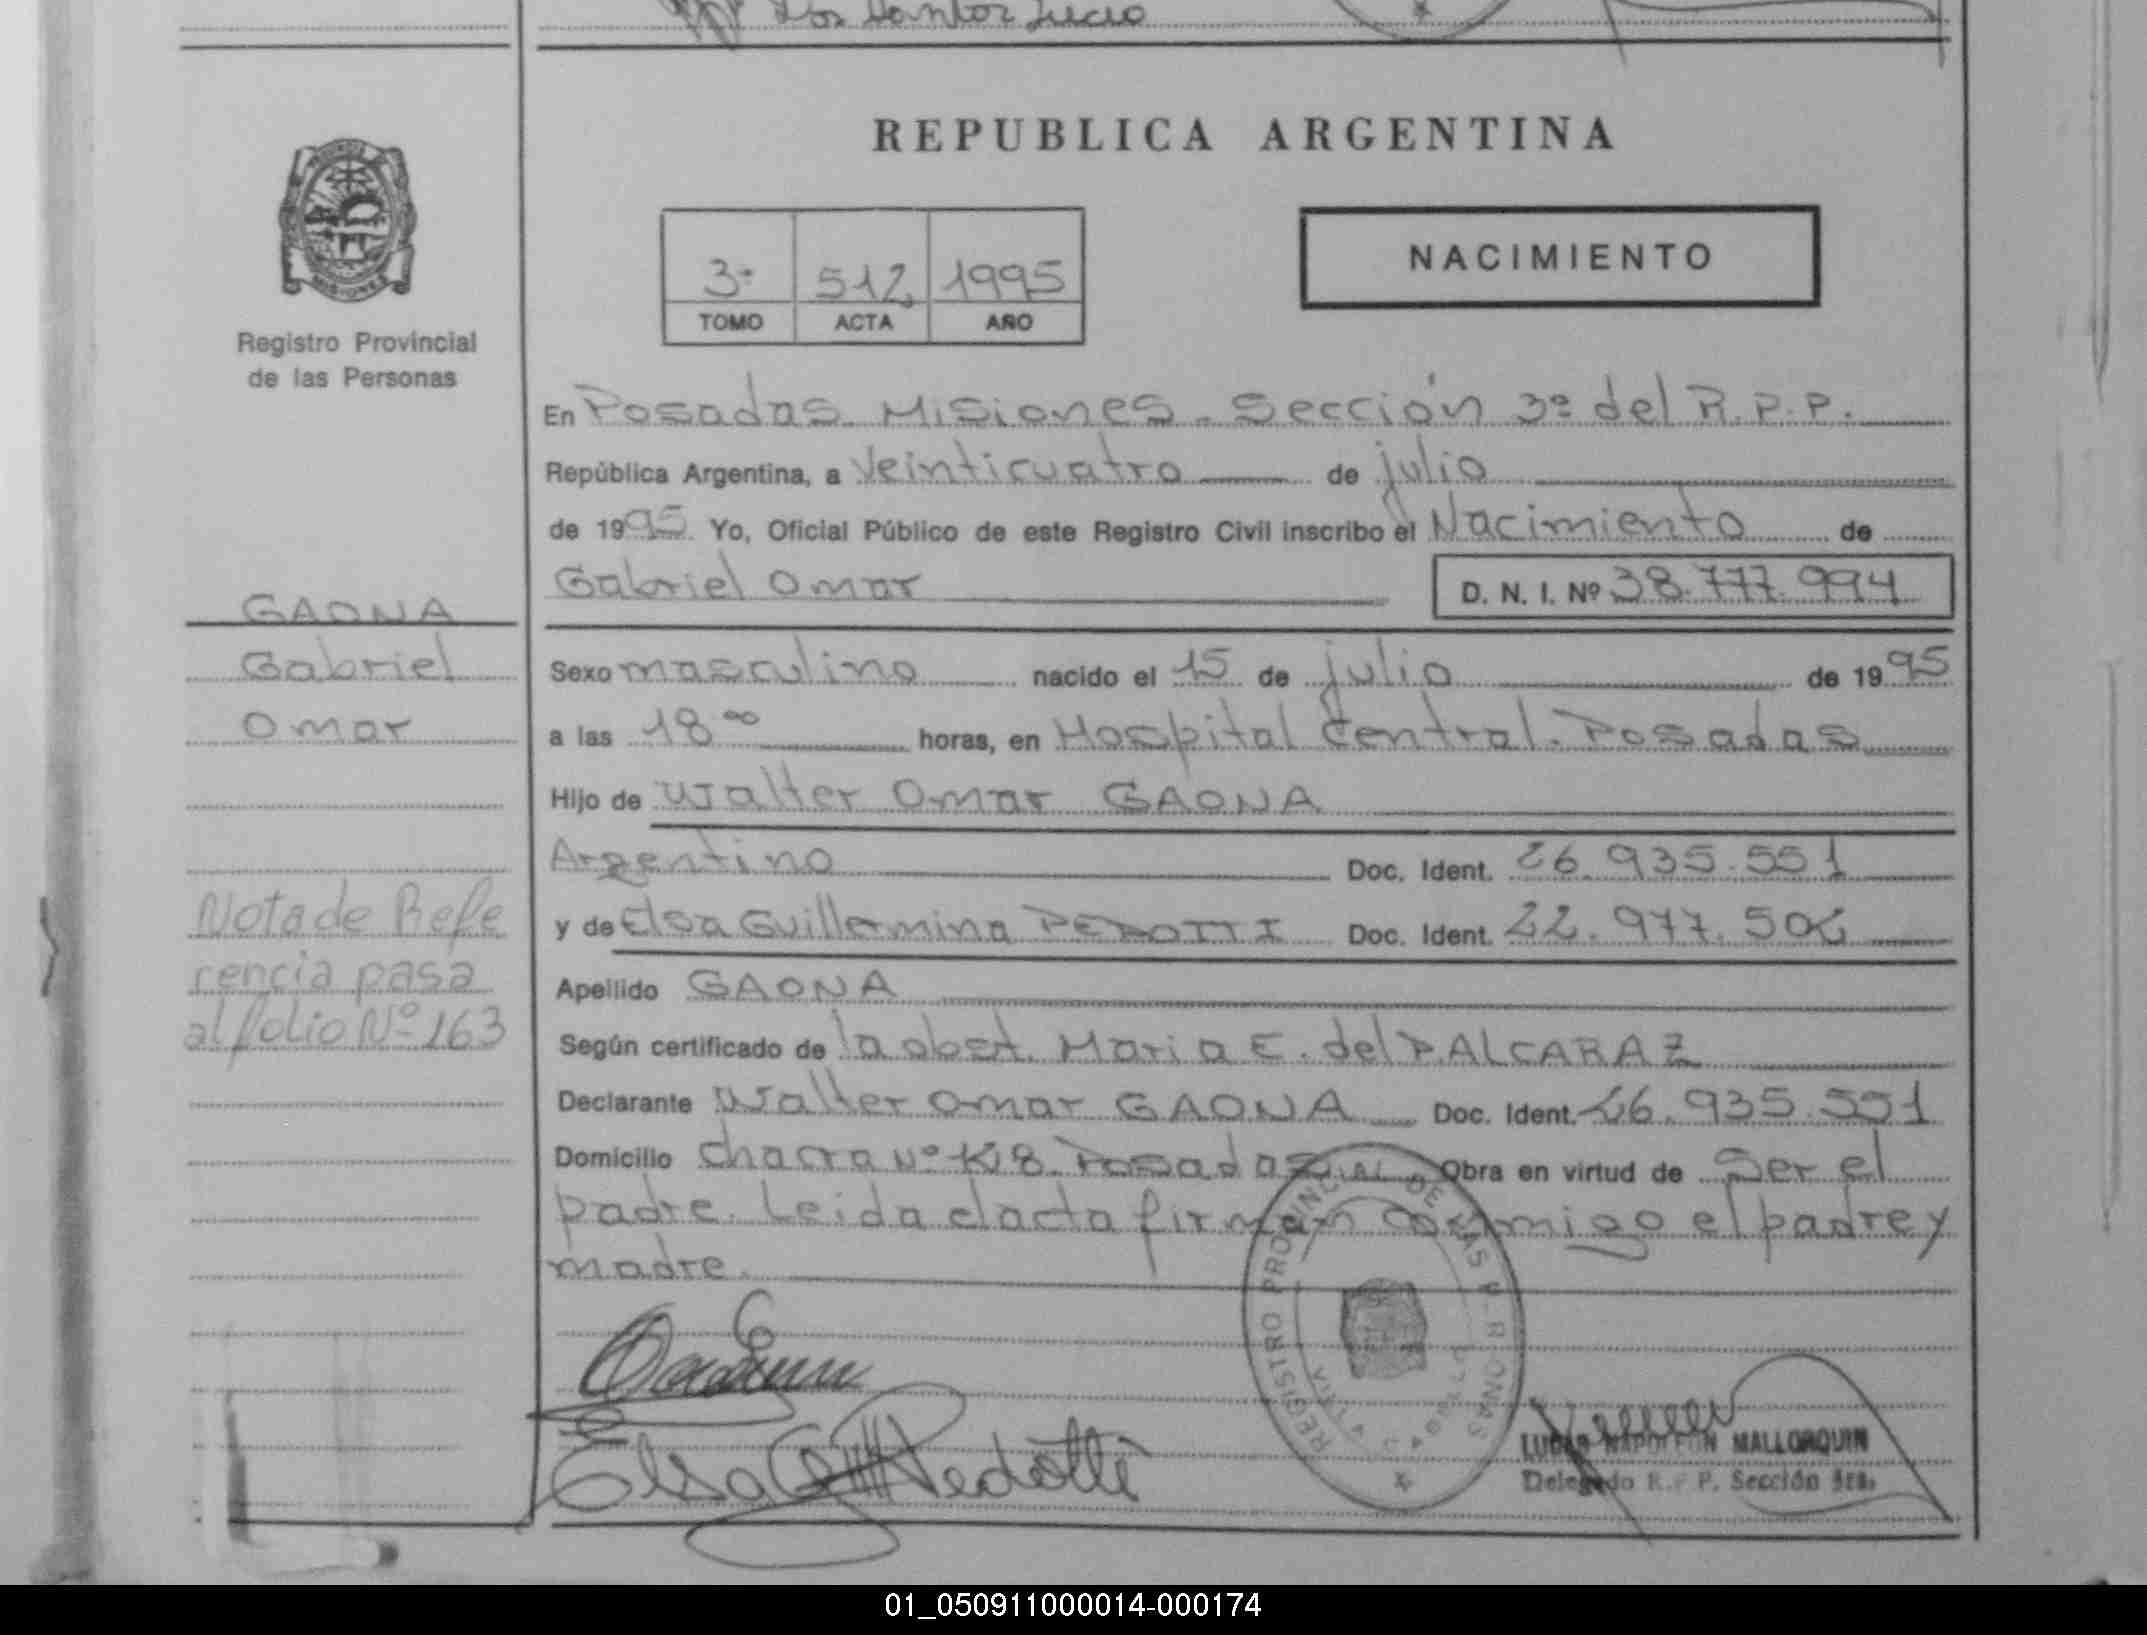 Dos Santos Lucio
REPUBLICA ARGENTINA
3ª 512 1995
TOMO ACTA AÑO
NACIMIENTO
MISIONES
Registro Provincial
de las Personas
En Posadas. Misiones. Sección 3ª del R.P.P.
República Argentina, a Veinticuatro de julio
de 1995. Yo, Oficial Público de este Registro Civil inscribo el Nacimiento de
Gabriel Omar D. N. I. Nº 38.777.994
GAONA
Gabriel
Omar
Sexo masculino nacido el 15 de julio de 1995
a las 18 ºº horas, en Hospital Central. Posadas
Hijo de Walter Omar GAONA
Argentino Doc. Ident. 26.935.551
y de Elsa Guillermina PEDOTTI Doc. Ident. 22.977.506
Nota de Refe
rencia pasa
al folio Nº 163
Apellido GAONA
Según certificado de la obst. Maria E. del P. ALCARAZ
Declarante Walter Omar GAONA Doc. Ident. 26.935.551
Domicilio Chacra Nº 108. Posadas Obra en virtud de Ser el
padre. Leida el acta firman conmigo el padre y
madre.
REGISTRO PROVINCIAL DE LAS PERSONAS
Elsa G Pedotti
LUCAS NAPOLEON MALLORQUIN
Delegado R.P.P. Sección 3ra.
01_050911000014-000174